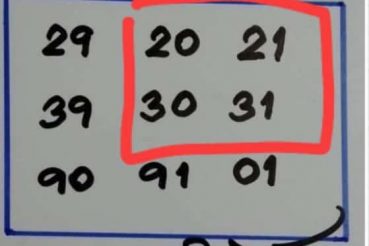 29 20 21
39 30 31
90 91 01